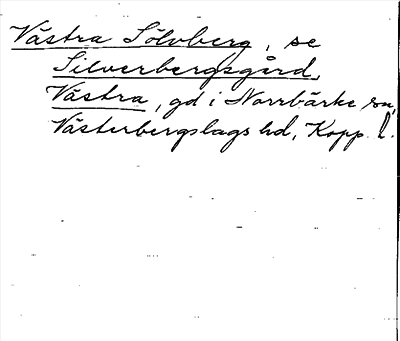 Västra Sölvberg, se
Silverbergsgård,
Västra, gd i Norrbärke sn,
Västerbergslags hd, Kopp. l.